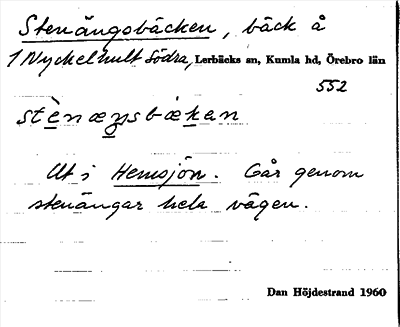 Stenängsbäcken, bäck å
1 Nyckelhult Södra, Lerbäcks sn, Kumla hd, Örebro län
552
stènæŋsbæken
Ut i Hemsjön. Går genom
stenängar hela vägen.
Dan Höjdestrand 1960